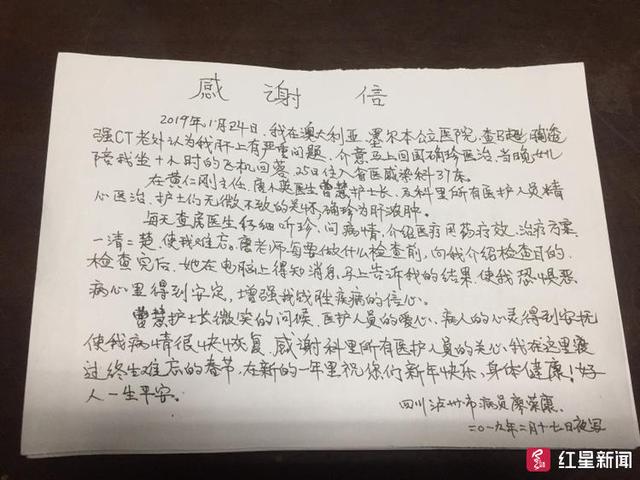 感谢信
2019年1月24日,我在澳大利亚墨尔本公立医院,查B超 胸透
强CT老外认为我肝上有严重问题,介意马上回国确珍医治,当晚女儿
陪我坐十小时的飞机回蓉,25日住入省医感染科37床。
在黄仁刚主任,医生曾慧护士长,及科里所有医护人员精
心医治,护士们无微不致的关怀,确珍为肝浓肿。
每天查房医生仔细听珍,问病情,介绍医疗用药疗效,治疗方案,
一清二楚,使我难忘。老师每要做什么检查前,向我介绍检查目的,
检查完后,她在电脑上得知消息,马上告诉我的结果,使我恐惧恶
病心里得到安定,增强我战胜疾病的信心。
曾慧护士长微笑的问候,医护人员的爱心,病人的心灵得到安抚
使我病情很快恢复,感谢科里所有医护人员的关心,我在这里度
过终生难忘的春节,在新的一年里祝你们新年快乐,身体健康!好
人一生平安。
四川泸州市病员廖荣康
二〇一九年二月十七日夜写
红星新闻